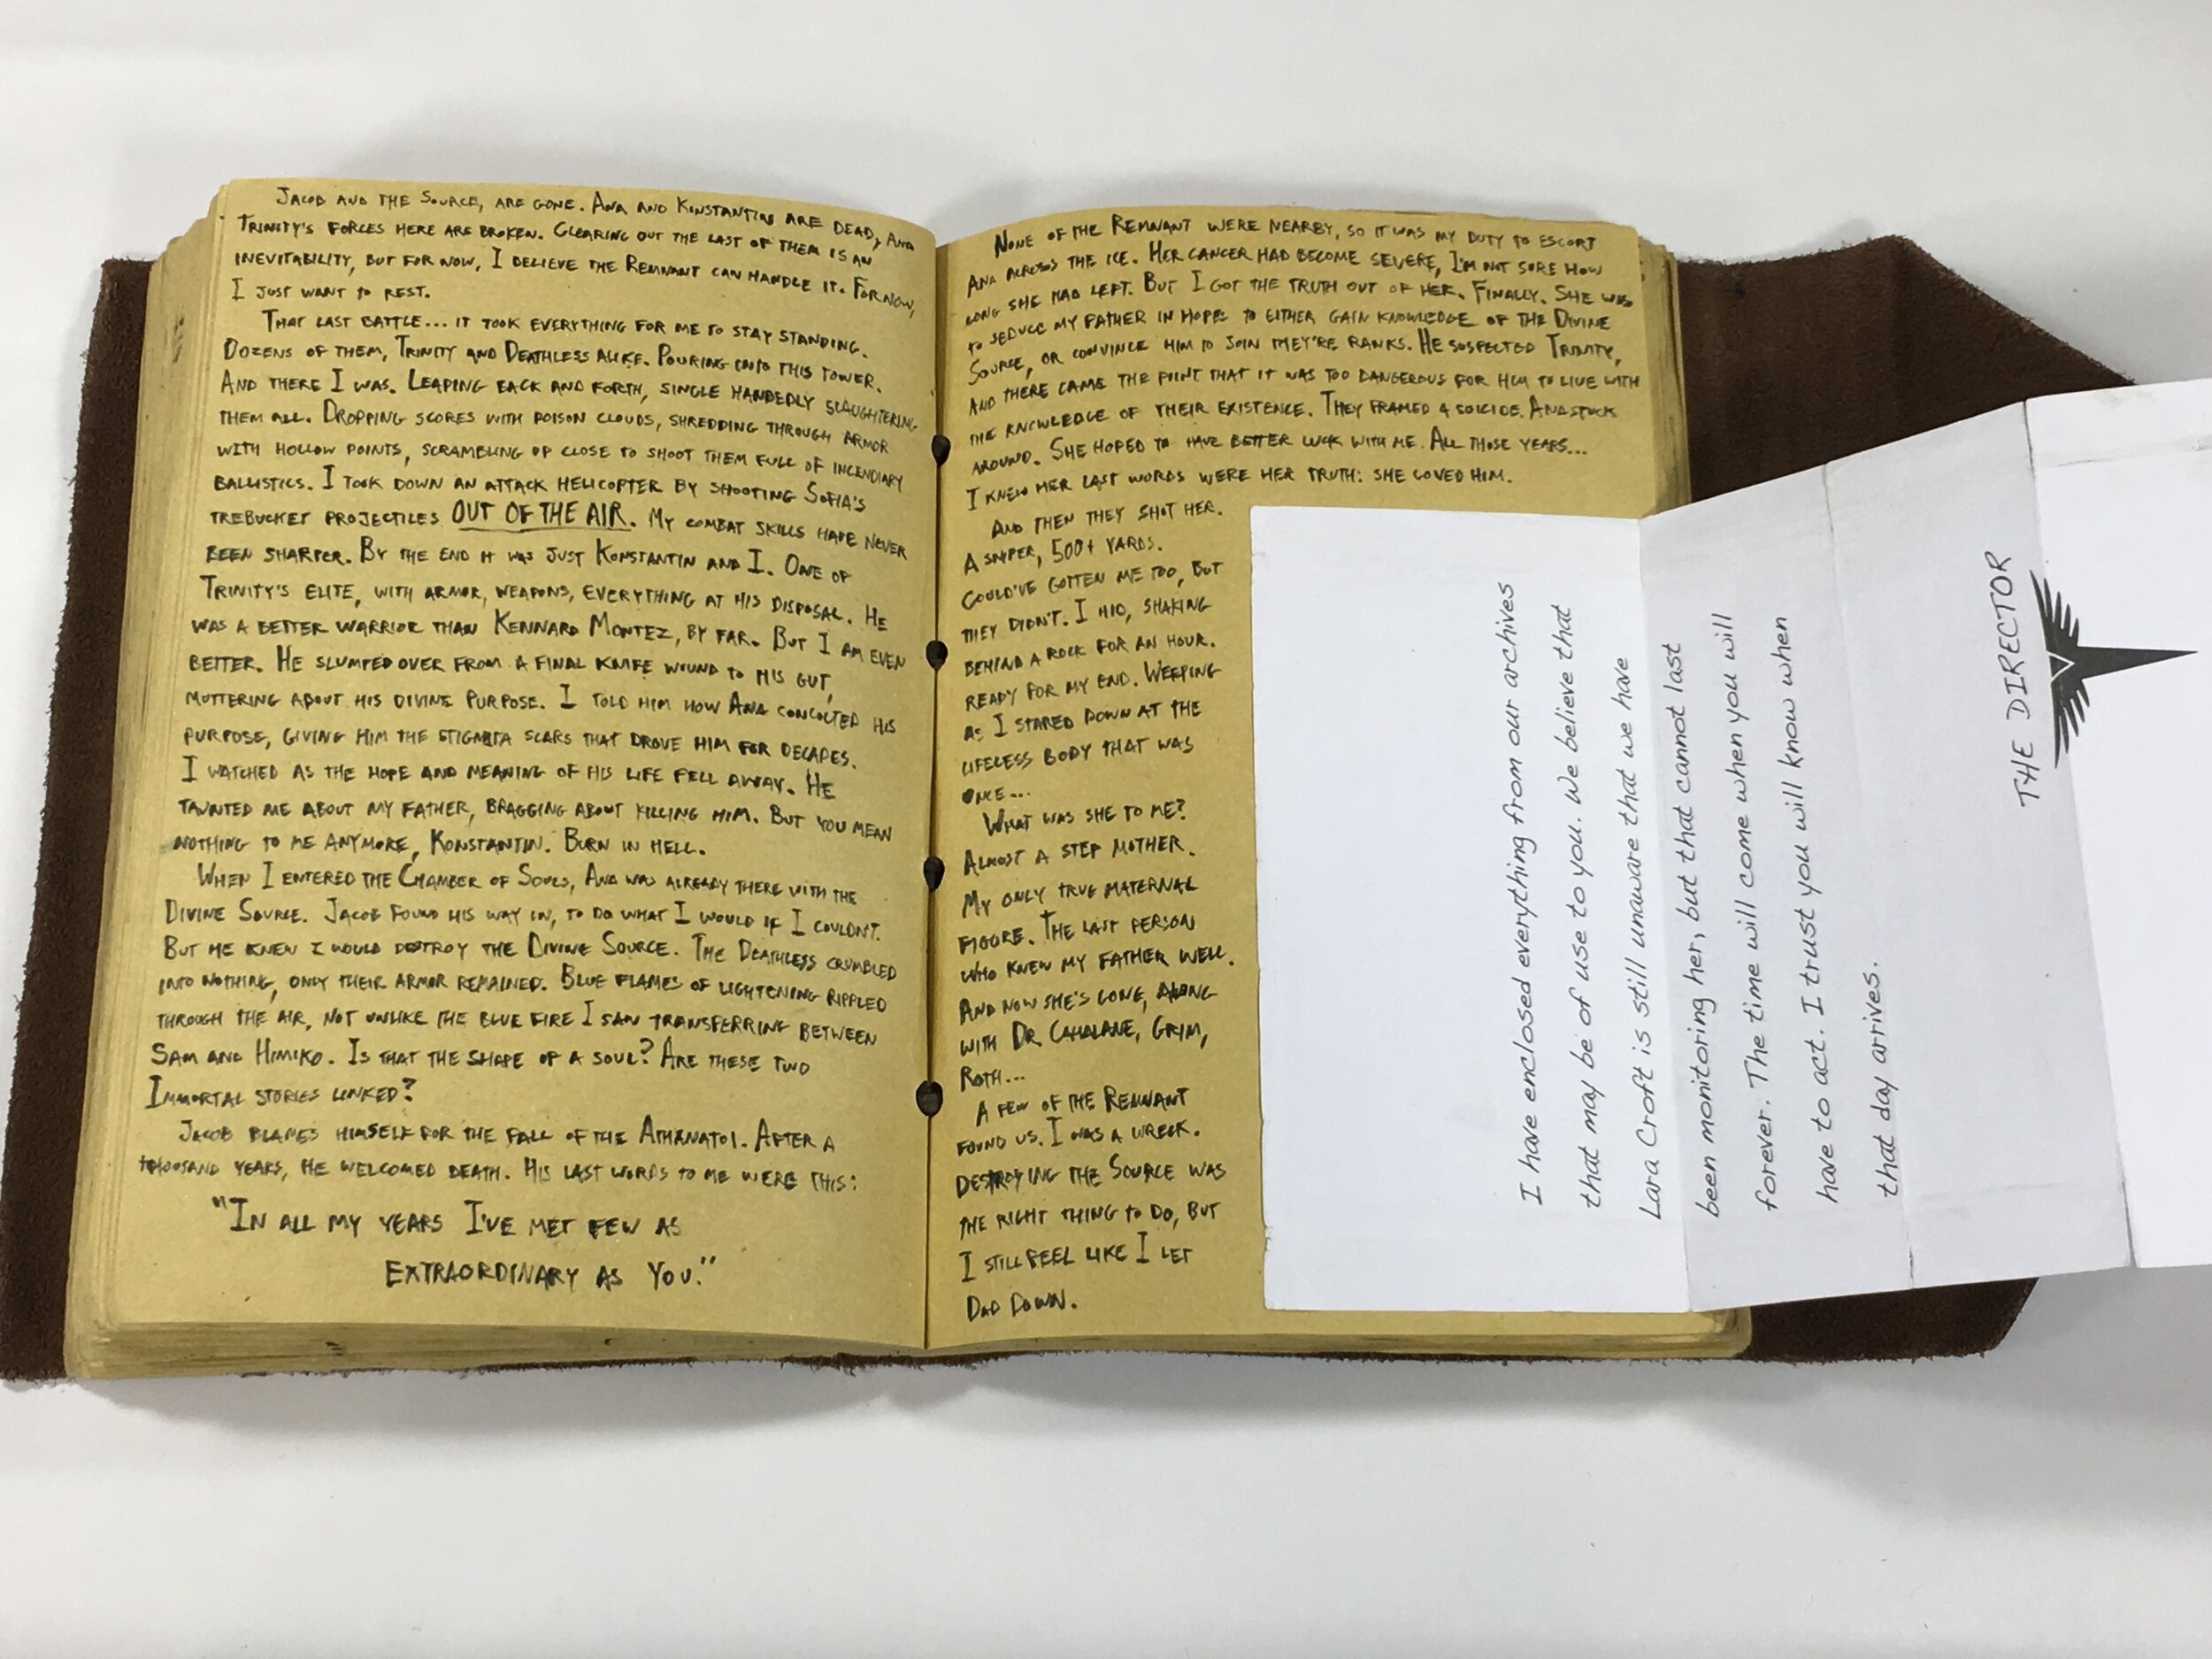 Jacob and the Source, are gone. Ana and Konstantin are dead, and
Trinity's forces here are broken. Clearing out the last of them is an
inevitability, but for now, I believe the Remnant can handle it. For now,
I just want to rest.
That last battle... it took everything for me to stay standing.
Dozens of them, Trinity and Deathless alike. Pouring into this tower.
And there I was. Leaping back and forth, single handedly slaughtering
them all. Dropping scores with poison clouds, shredding through armor
with hollow points, scrambling up close to shoot them full of incendiary
ballistics. I took down an attack helicopter by shooting Sofia's
trebuchet projectiles OUT OF THE AIR. My combat skills have never
been sharper. By the end it was just Konstantin and I. One of
Trinity's elite, with armor, weapons, everything at his disposal. He
was a better warrior than Kennard Montez, by far. But I am even
better. He slumped over from a final knife wound to his gut,
muttering about his divine purpose. I told him how Ana concocted his
purpose, giving him the stigmata scars that drove him for decades.
I watched as the hope and meaning of his life fell away. He
taunted me about my father, bragging about killing him. But you mean
nothing to me anymore, Konstantin. Burn in hell.
When I entered the Chamber of Souls, Ana was already there with the
Divine Source. Jacob found his way in, to do what I would if I couldn't.
But he knew I would destroy the Divine Source. The Deathless crumbled
into nothing, only their armor remained. Blue flames of lightening rippled
through the air, not unlike the blue fire I saw transferring between
Sam and Himiko. Is that the shape of a soul? Are these two
Immortal stories linked?
Jacob blames himself for the fall of the Athanatoi. After a
thousand years, he welcomed death. His last words to me were this:
"In all my years I've met few as
extraordinary as you."
None of the Remnant were nearby, so it was my duty to escort
Ana across the ice. Her cancer had become severe, I'm not sure how
long she had left. But I got the truth out of her. Finally. She was
to seduce my father in hopes to either gain knowledge of the Divine
Source, or convince him to join they're ranks. He suspected Trinity,
and there came the point that it was too dangerous for him to live with
the knowledge of their existence. They framed a suicide. Ana stuck
around. She hoped to have better luck with me. All those years...
I knew her last words were her truth: she loved him.
And then they shot her.
A sniper, 500+ yards.
Could've gotten me too, but
they didn't. I hid, shaking
behind a rock for an hour.
Ready for my end. Weeping
as I stared down at the
lifeless body that was
once...
What was she to me?
Almost a step mother.
My only true maternal
figure. The last person
who knew my father well.
And now she's gone, along
with Dr. Cahalane, Grim,
Roth...
A few of the Remnant
found us. I was a wreck.
Destroying the Source was
the right thing to do, but
I still feel like I let
Dad down.
I have enclosed everything from our archives
that may be of use to you. We believe that
Lara Croft is still unaware that we have
been monitoring her, but that cannot last
forever. The time will come when you will
have to act. I trust you will know when
that day arrives.
THE DIRECTOR